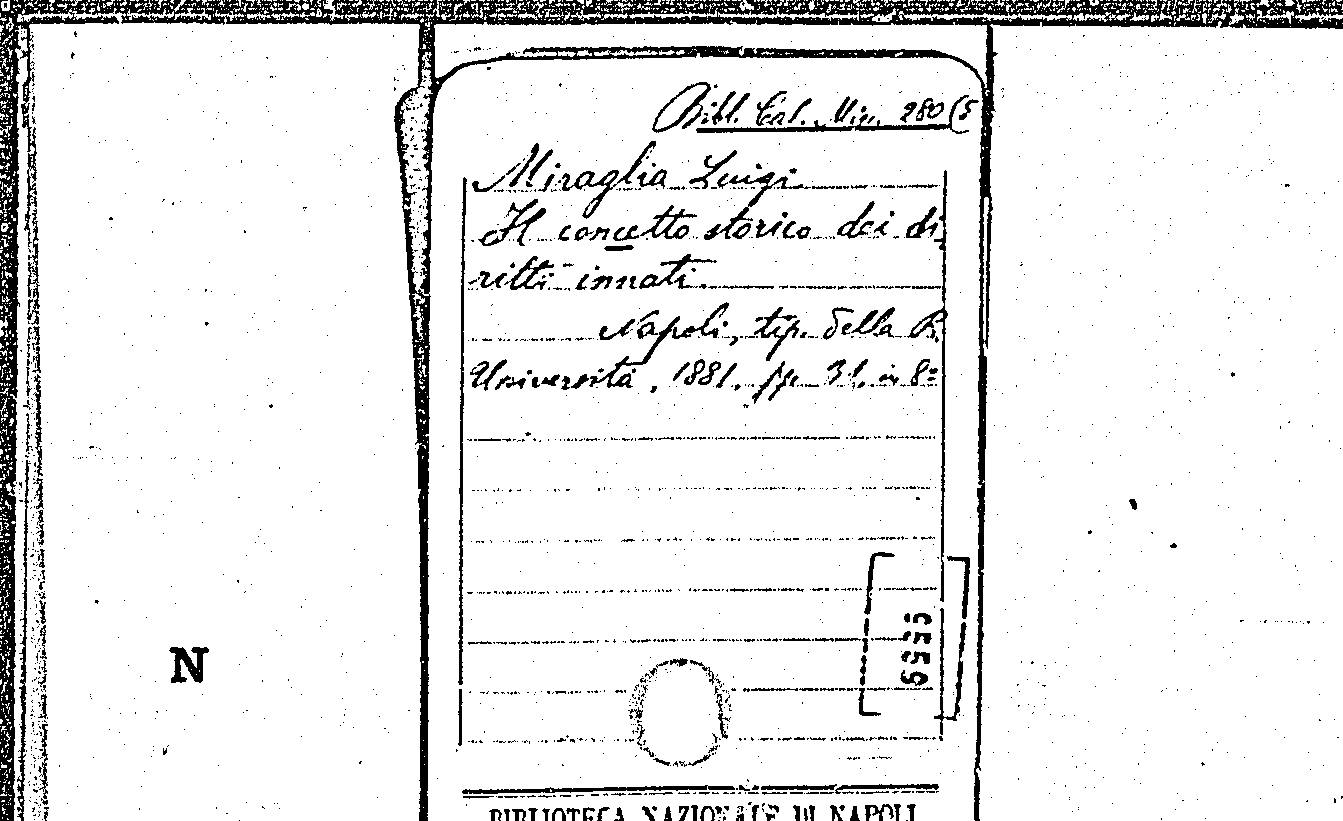 Bibl. Cal. Min. 280 (5
Miraglia Luigi
Il concetto storico dei di
ritti innati.
Napoli, tip. della R.
Università, 1881. pp. 31. in 8º
N
BIBLIOTECA NAZIONALE DI NAPOLI